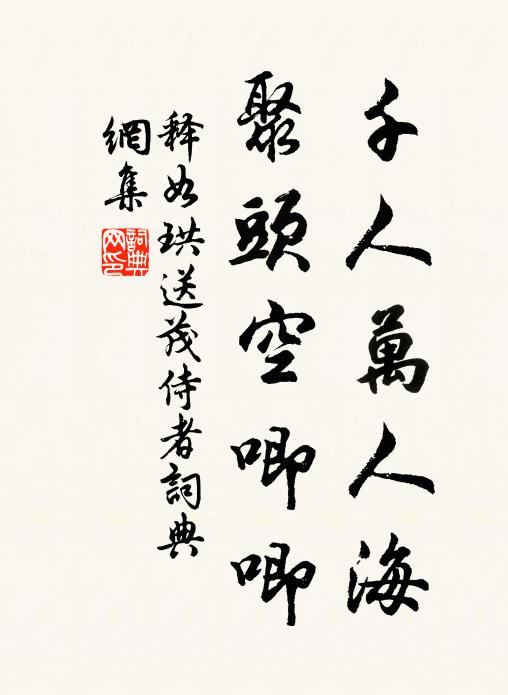 千人萬人海
聚頭空唧唧
释如珙送茂侍者詞典
網集
詞典
网印